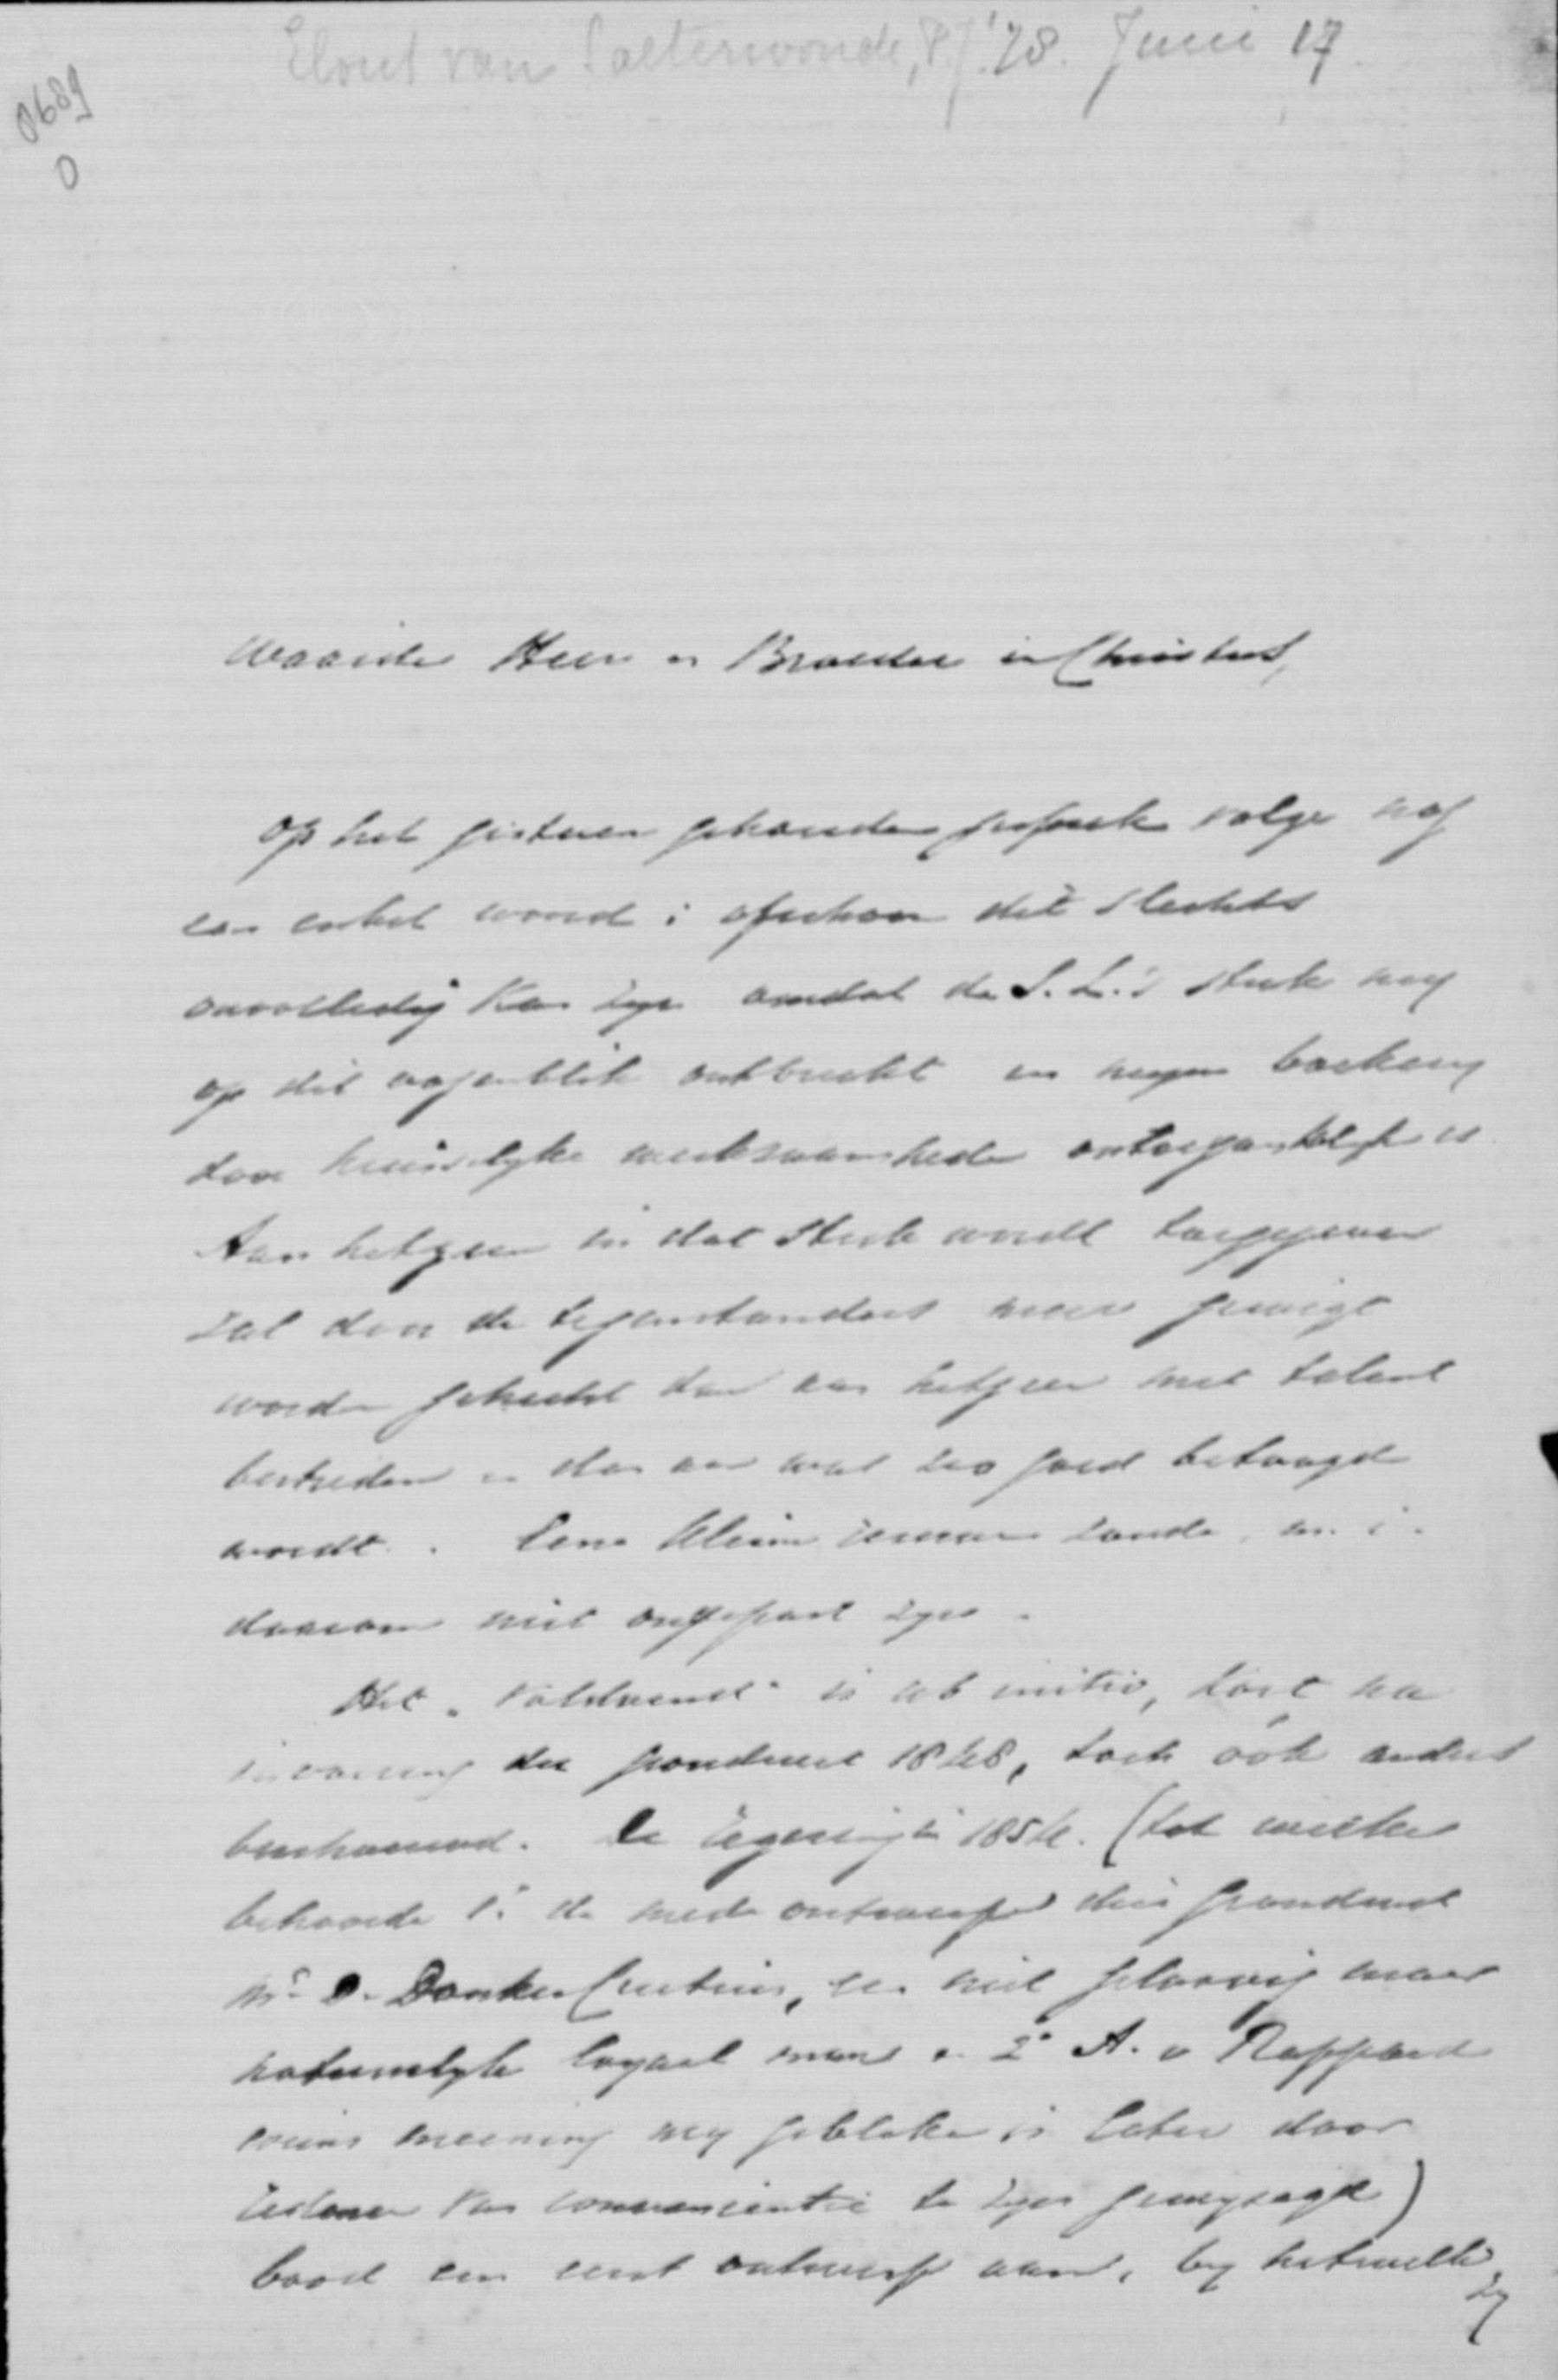 Elout van Soeterwoude, P.J. '28. Juni 17.
0689
0
Waarde Heer en Broeder in Christus,
Op het gisteren gehouden gesprek volge nog
een enkel woord; ofschoon dit slechts
onvolledig kan zyn omdat de S. L.'s stuk my
op dit oogenblik ontbreekt en mijne boekery
door huisselyke werkzaamheden ontoegankelyk is.
Aan hetgeen in dat stuk wordt toegegeven
zal door de tegenstanders meer gewigt
worden gehecht dan aan hetgeen met talent
bestreden en dan aan wat zoo goed betoogd
wordt. Eene kleine zoude m. i.
daarom niet ongepast zyn.
Het "Voldoend" is ab initio, kort na
invoering der grondwet 1848, toch óók anders
beschouwd. De Regering in 1854. (tot welke
behoorde 1° de mede ontwerper dier grondwet
Mr. D. Donker Curtius, een niet geloovig maar
natuurlyk loyaal man en 2° A. v Rappard
wiens meening my gebleken is later door
redenen van convenientie te zyn gewyzigd)
bood een eerst ontwerp aan, by hetwelk
zy